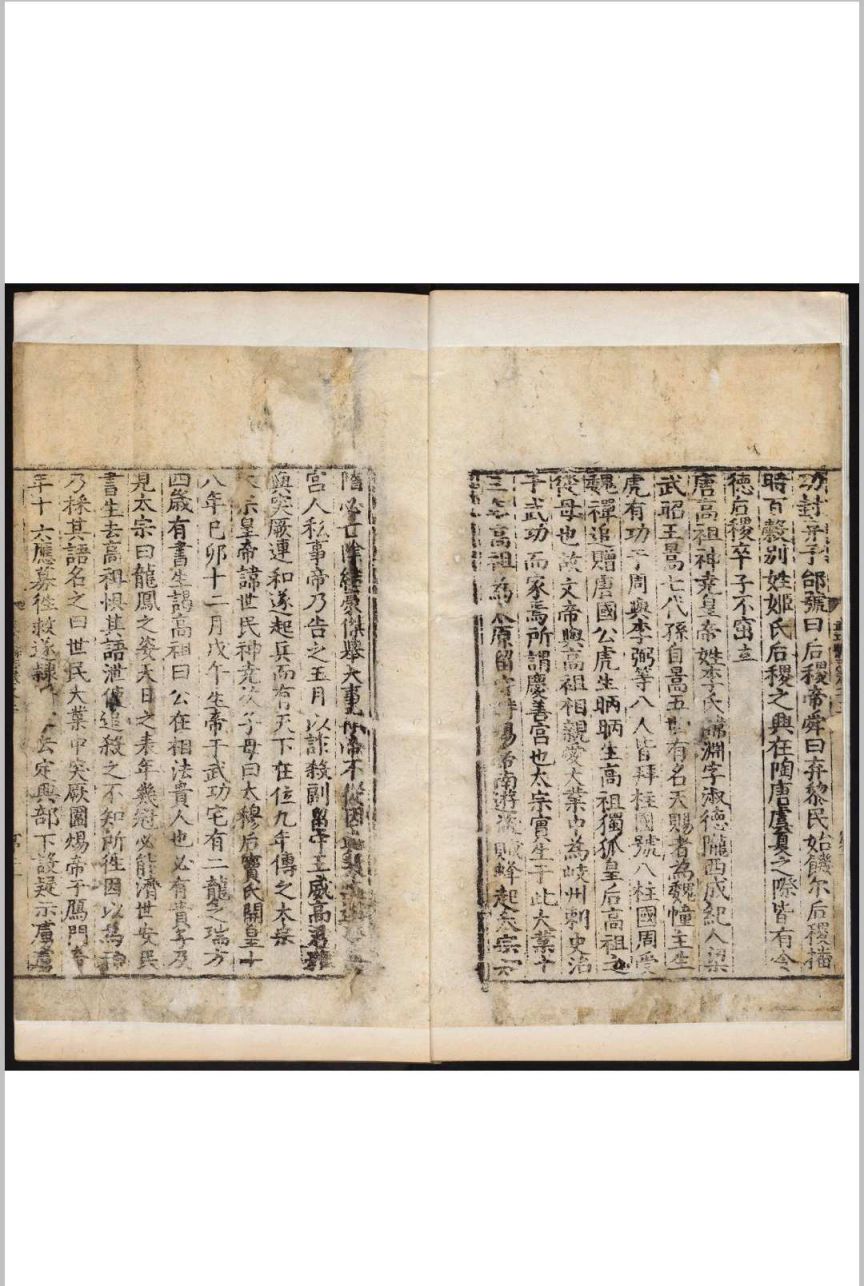 功封弃于邰號曰后稷帝舜曰弃黎民始饑尔后稷播
時百穀別姓姬氏后稷之興在陶唐虞夏之際皆有令
德后稷卒子不窋立
唐高祖神堯皇帝姓李氏諱淵字淑德隴西成紀人梁
武昭王暠七代孫自暠五世有名天賜者為魏幢主生
虎有功于周與李弼等八人皆拜柱國號八柱國周受
魏禪追贈唐國公虎生昞昞生高祖獨狐皇后高祖之
從母也故文帝與高祖相親愛大業中為岐州刺史治
于武功而家焉所謂慶善宮也太宗實生于此大業十
三年高祖為太原留守時煬帝南遊盜賊蜂起太宗
隋必亡陰結豪傑舉大事高帝不從因
宮人私事帝乃告之五月以詐殺副留守王威高君雅
與突厥連和遂起兵而有天下在位九年傳之太宗
太宗皇帝諱世民神堯次子母曰太穆后竇氏開皇十
八年巳卯十二月戊午生帝于武功宅有二龍之瑞方
四歲有書生謁高祖曰公在相法貴人也必有貴子及
見太宗曰龍鳳之姿天日之表年幾冠必能濟世安民
書生去高祖惧其語泄使追殺之不知所徃因以為神
乃採其語名之曰世民大業中突厥圍煬帝于鴈門帝
年十六應募徃救遂隸 定興部下設疑示虜